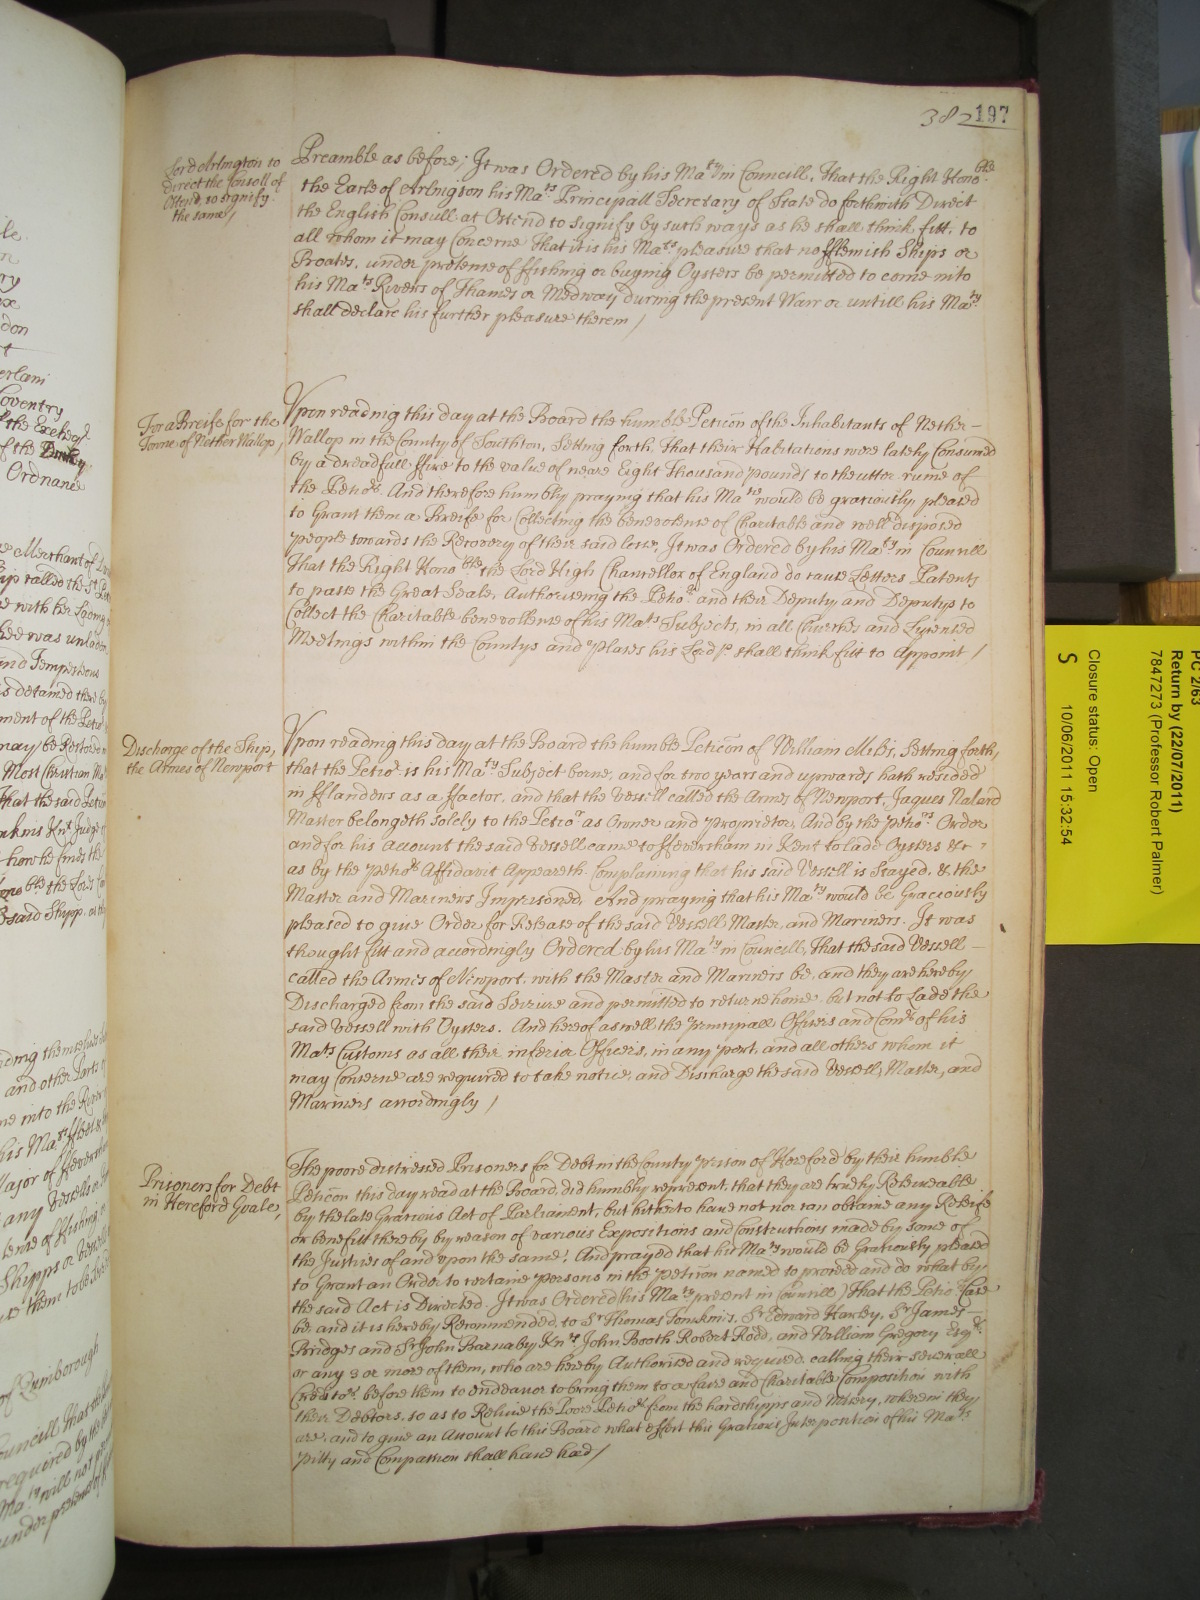 382 197
Lord Arlington to
direct the Consell of
Ostend, to signify
the same /
Preamble as before; It was Ordered by his Maty in Councill, That the Right Honoble
the Earle of Arlington his Mats Principall Secretary of State do forthwith Direct
the English Consull at Ostend to signify by such ways as he shall think fitt, to
all whom it may Concerne that it is his Mats pleasure that no fflemish Ships or
Boates, under pretense of ffishing or buying Oysters be permitted to come into
his Mats Rivers of Thames or Medway during the present Warr or untill his Maty
shall declare his further pleasure therein /
For a Breife for the
Towne of Nether Wallop /
Upon reading this day at the Board the humble Peticon of the Inhabitants of Nether-
Wallop in the County of Southton, Setting forth, That their Habitations were lately Consumed
by a dreadfull ffire to the value of neare Eight Thousand pounds to the utter ruine of
the Petrs. And therefore humbly praying that his Maty would be graciously pleased
to Grant them a Breife for Collecting the benevolense of Charitable and well disposed
people towards the Recovery of their said losse, It was Ordered by his Maty in Councill
That the Right Honoble the Lord High Chancellor of England do cause Letters Patents
to passe the Great Seale, Authoriseing the Petrs and their Deputy and Deputys to
Collect the Charitable benevollense of his Mats Subjects, in all Churches and Lycensed
Meetings within the Countys and Places his Lordp shall think fitt to Appoint /
Discharge of the Ship,
the Armes of Newport
Upon reading this day at the Board the humble Peticon of William Mils, Setting forth,
that the Petior is his Maty Subject borne, and for two years and upwards hath resided
in fflanders as a ffactor, and that the Vessell called the Armes of Newport, Jaques Nalard
Master belongeth solely to the Petior as Owner and Proprietor, And by the Petiors Order
and for his Account the said Vessell came to ffeversham in Kent to lade Oysters &c
as by the Petiors Affidavit Appeareth. Complaining that his said Vessell is Stayed, & the
Master and Mariners Imprisoned, And praying that his Maty would be Graciously
pleased to give Order for Release of the said Vessell Master, and Mariners. It was
thought fitt and accordingly Ordered by his Maty in Councill, That the said Vessell -
called the Armes of Newport, with the Master and Mariners be, and they are hereby
Discharged from the said Seizure and permitted to returne home, but not to Lade the
said Vessell with Oysters. And hereof as well the Principall Officers and Comrs of his
Mats Customs as all their inferior Officers, in any port, and all others whom it
may Concerne are required to take notice, and Discharge the said Vessell, Master, and
Mariners accordingly /
Prisoners for Debt
in Hereford Goale,
The poore distressed Prisoners for Debt in the County Prison of Hereford by their humble
Peticon this day read at the Board, did humbly represent, that they are truely Releiveable
by the late Gracious Act of Parliament, but hitherto have not nor can obtaine any Releife
or benefitt thereby by reason of various Expositions and Constructions made by some of
the Justices of and upon the same! And prayed that his Maty would be Graciously pleased
to Grant an Order to certaine Persons in the Peticon named to proceed and do what by
the said Act is Directed. It was Ordered (his Maty present in Councill) That the Petrs Case
be, and it is hereby Recommended, to Sr Thomas Tomkins, Sr Edward Harley, Sr James
Bridges and Sr John Barnaby Knts John Booth Robert Rodd, and William Gregory Esqrs
or any 3 or more of them, who are hereby Authorised and required, calling their severall
Creditors before them to endeavor to bring them to a faire and Charitable Composition with
their Debtors, so as to Releive the Poore Petrs from the hardshipps and Misery, wherein they
are, and to give an Account to this Board what effect this Gracious Interposition of his Mats
Pitty and Compassion shall have had /
PC 2/63
Return by (22/07/2011)
7847273 (Professor Robert Palmer)
Closure status: Open
S 10/06/2011 15:32:54